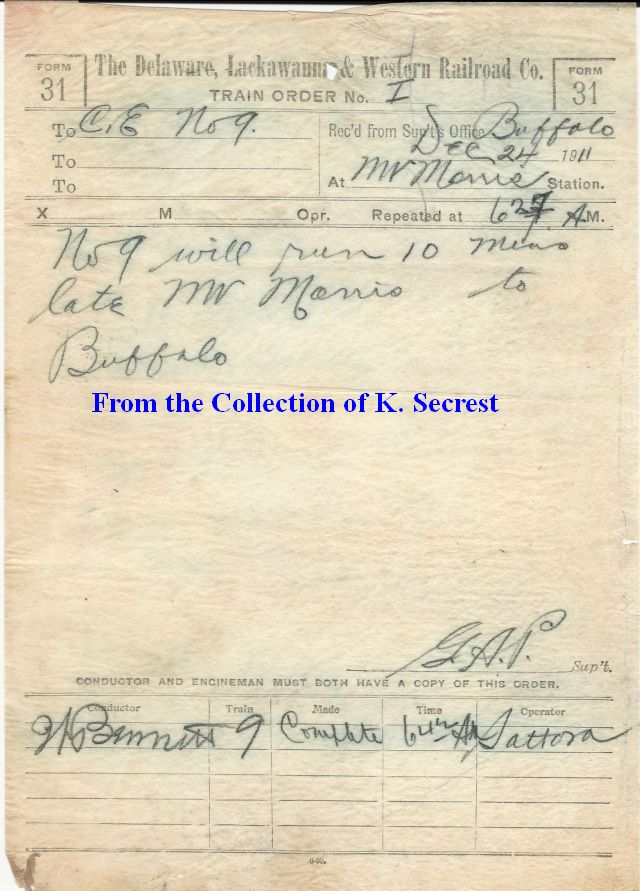 FORM 31 The Delaware, Lackawanna & Western Railroad Co. FORM 31
TRAIN ORDER No. I
To C,E No 9. Rec'd from Sup't's Office Buffalo
To Dec 24 1911
To At Mt Morris Station.
X M Opr. Repeated at 627 A.M.
No 9 will run 10 mins
late Mt Morris to
Buffalo
From the Collection of K. Secrest
G.A.P. Sup't.
CONDUCTOR AND ENGINEMAN MUST BOTH HAVE A COPY OF THIS ORDER.
Conductor Train Made Time Operator
Bennett 9 Complete